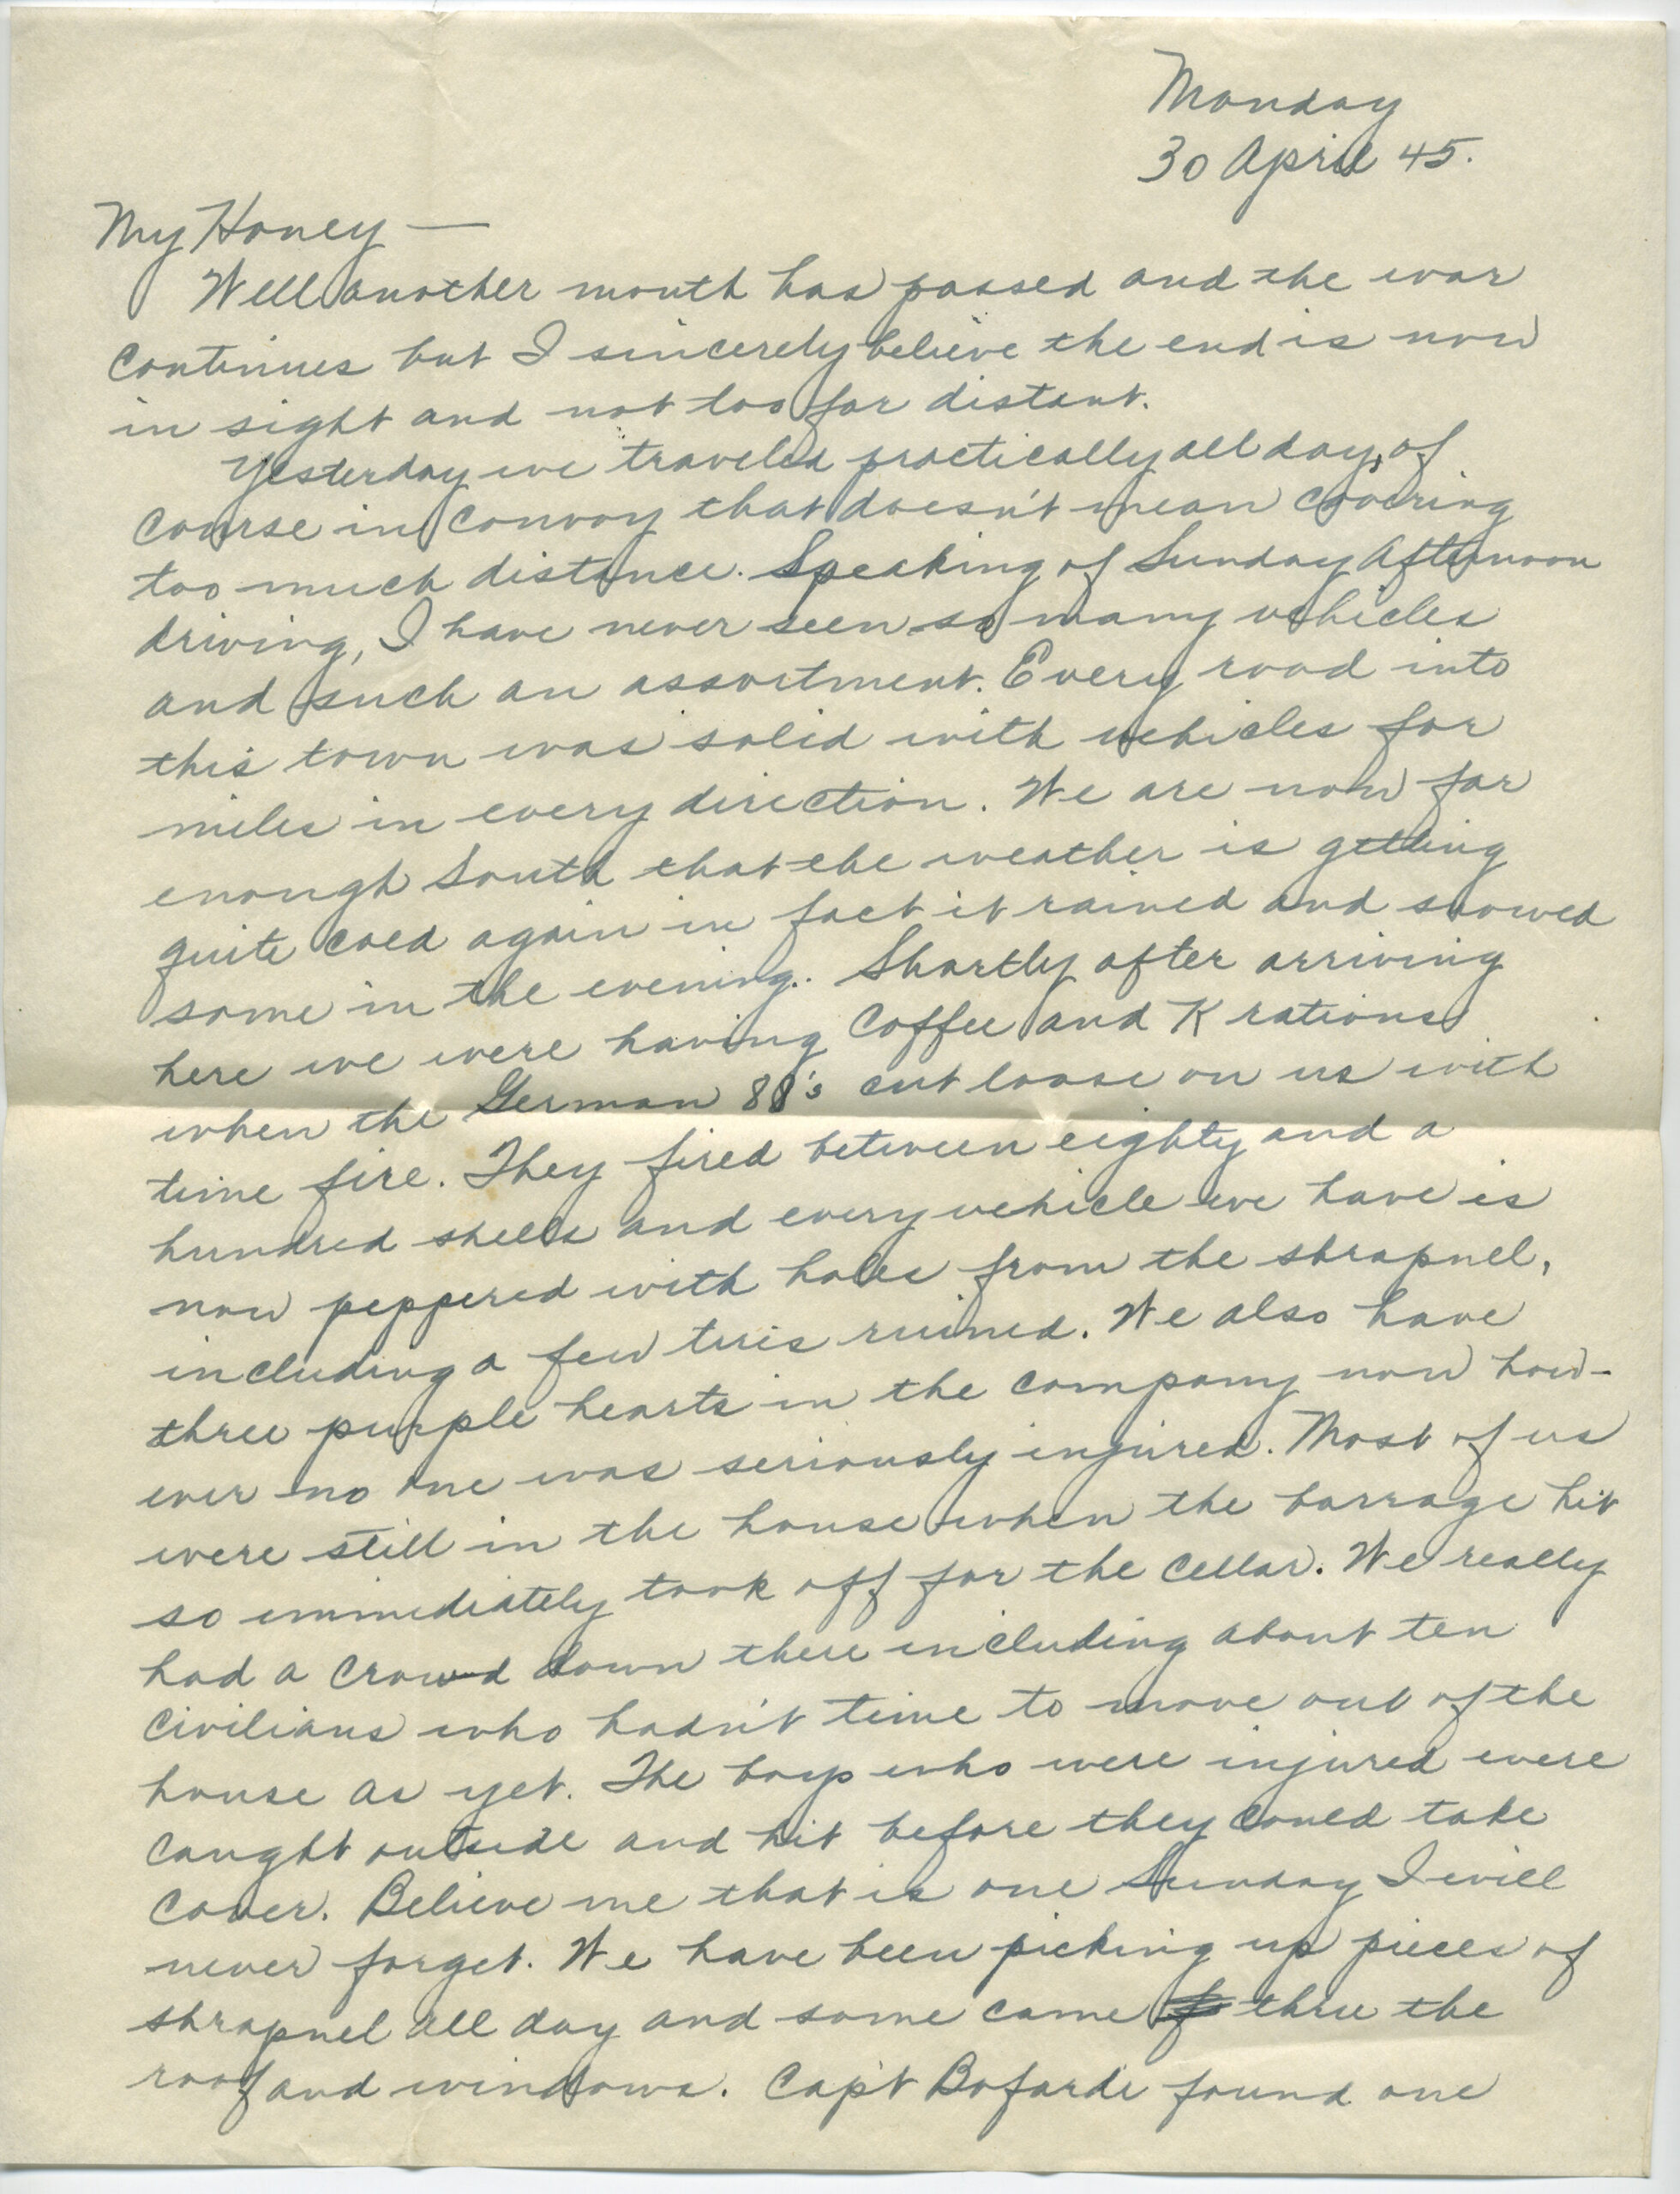 Monday
30 April 45.
My Honey —
Well another month has passed and the war
continues but I sincerely believe the end is now
in sight and not too far distant.
Yesterday we traveled practically all day, of
course in convoy that doesn't mean covering
too much distance. Speaking of Sunday Afternoon
driving, I have never seen so many vehicles
and such an assortment. Every road into
this town was solid with vehicles for
miles in every direction. We are now far
enough South that the weather is getting
quite cold again in fact it rained and snowed
some in the evening. Shortly after arriving
here we were having Coffee and K rations
when the German 88's cut loose on us with
time fire. They fired between eighty and a
hundred shells and every vehicle we have is
now peppered with holes from the shrapnel,
including a few tires ruined. We also have
three purple hearts in the company now how-
ever no one was seriously injured. Most of us
were still in the house when the barrage hit
so immediately took off for the cellar. We really
had a crowd down there including about ten
civilians who hadn't time to move out of the
house as yet. The boys who were injured were
caught outside and hit before they could take
cover. Believe me that is one Sunday I will
never forget. We have been picking up pieces of
shrapnel all day and some came thru the
roof and windows. Capt Bofarde found one